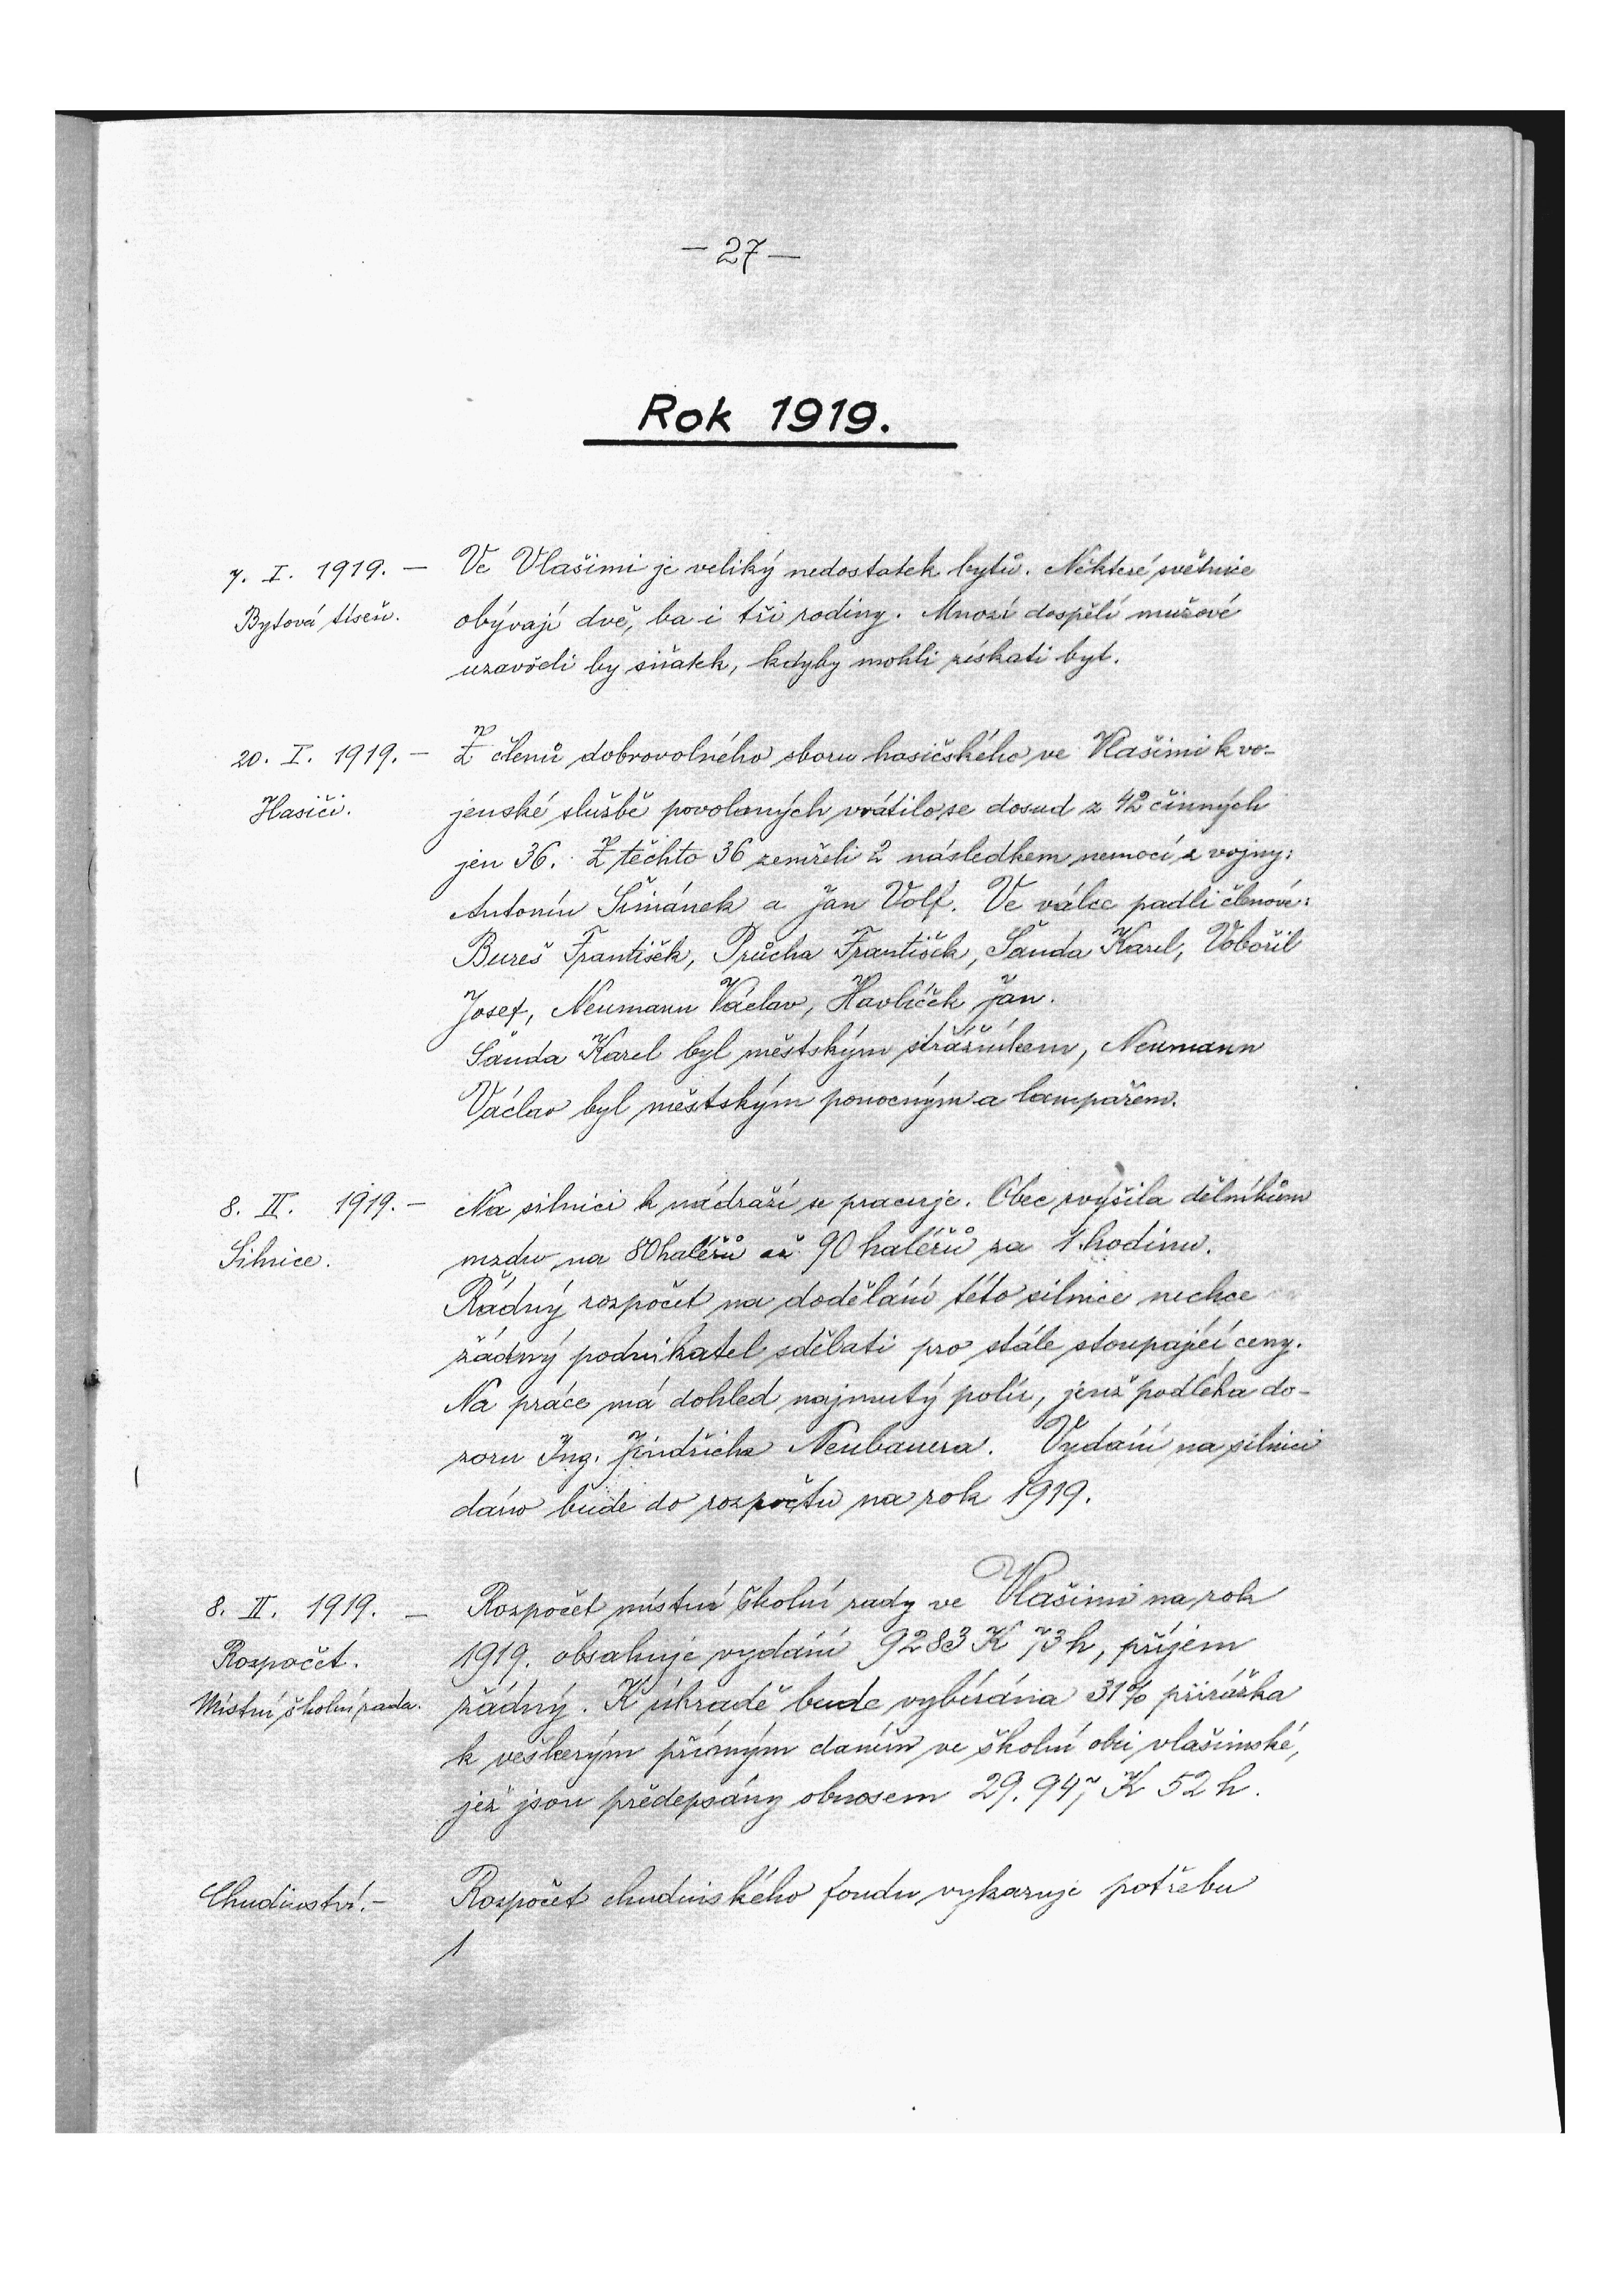 — 27 —
Rok 1919.
7. I. 1919. — Ve Vlašimi je veliký nedostatek bytů. Některé světnice
Bytová tíseň. obývají dvě, ba i tři rodiny. Mnozí dospělí mužové
uzavřeli by sňatek, kdyby mohli získati byt.
20. I. 1919. — Z členů dobrovolného sboru hasičského ve Vlašimi k vo-
Hasiči. jenské službě povolaných vrátilo se dosud z 42 činných
jen 36. Z těchto 36 zemřeli 2 následkem nemocí z vojny:
Antonín Šimánek a Jan Volf. Ve válce padli členové:
Bureš František, Průcha František, Šanda Karel, Vobořil
Josef, Neumann Václav, Havlíček Jan.
Šanda Karel byl městským strážníkem, Neumann
Václav byl městským ponocným a lampářem.
8. II. 1919. — Na silnici k nádraží se pracuje. Obec zvýšila dělníkům
Silnice. mzdu na 80 haléřů až 90 haléřů za 1 hodinu.
Řádný rozpočet na dodělání této silnice nechce
žádný podnikatel sdělati pro stále stoupající ceny.
Na práce má dohled najmutý polír, jenž podléhá do-
zoru Ing. Jindřicha Neubauera. Vydání na silnici
dáno bude do rozpočtu na rok 1919.
8. II. 1919. — Rozpočet místní školní rady ve Vlašimi na rok
Rozpočet. 1919. obsahuje vydání 9283 K 73 h, příjem
Místní školní rada. žádný. K úhradě bude vybírána 31% přirážka
k veškerým přímým daním ve školní obci vlašimské,
jež jsou předepsány obnosem 29.947 K 52 h.
Chudinství. — Rozpočet chudinského fondu vykazuje potřebu
1